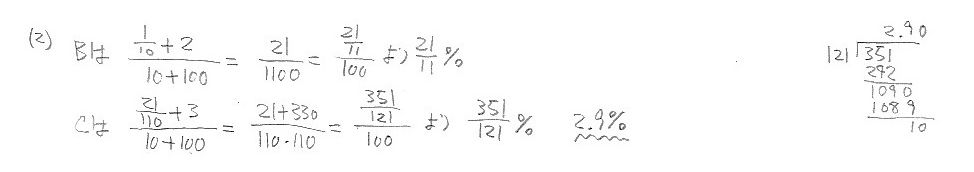 (2) Bは (1/10+2)/(10+100) = 21/1100 = (21/11)/100 より 21/11 %
Cは (21/110+3)/(10+100) = (21+330)/(110・110) = (351/121)/100 より 351/121 % 2.9%
2.90
121)351
242
1090
1089
10